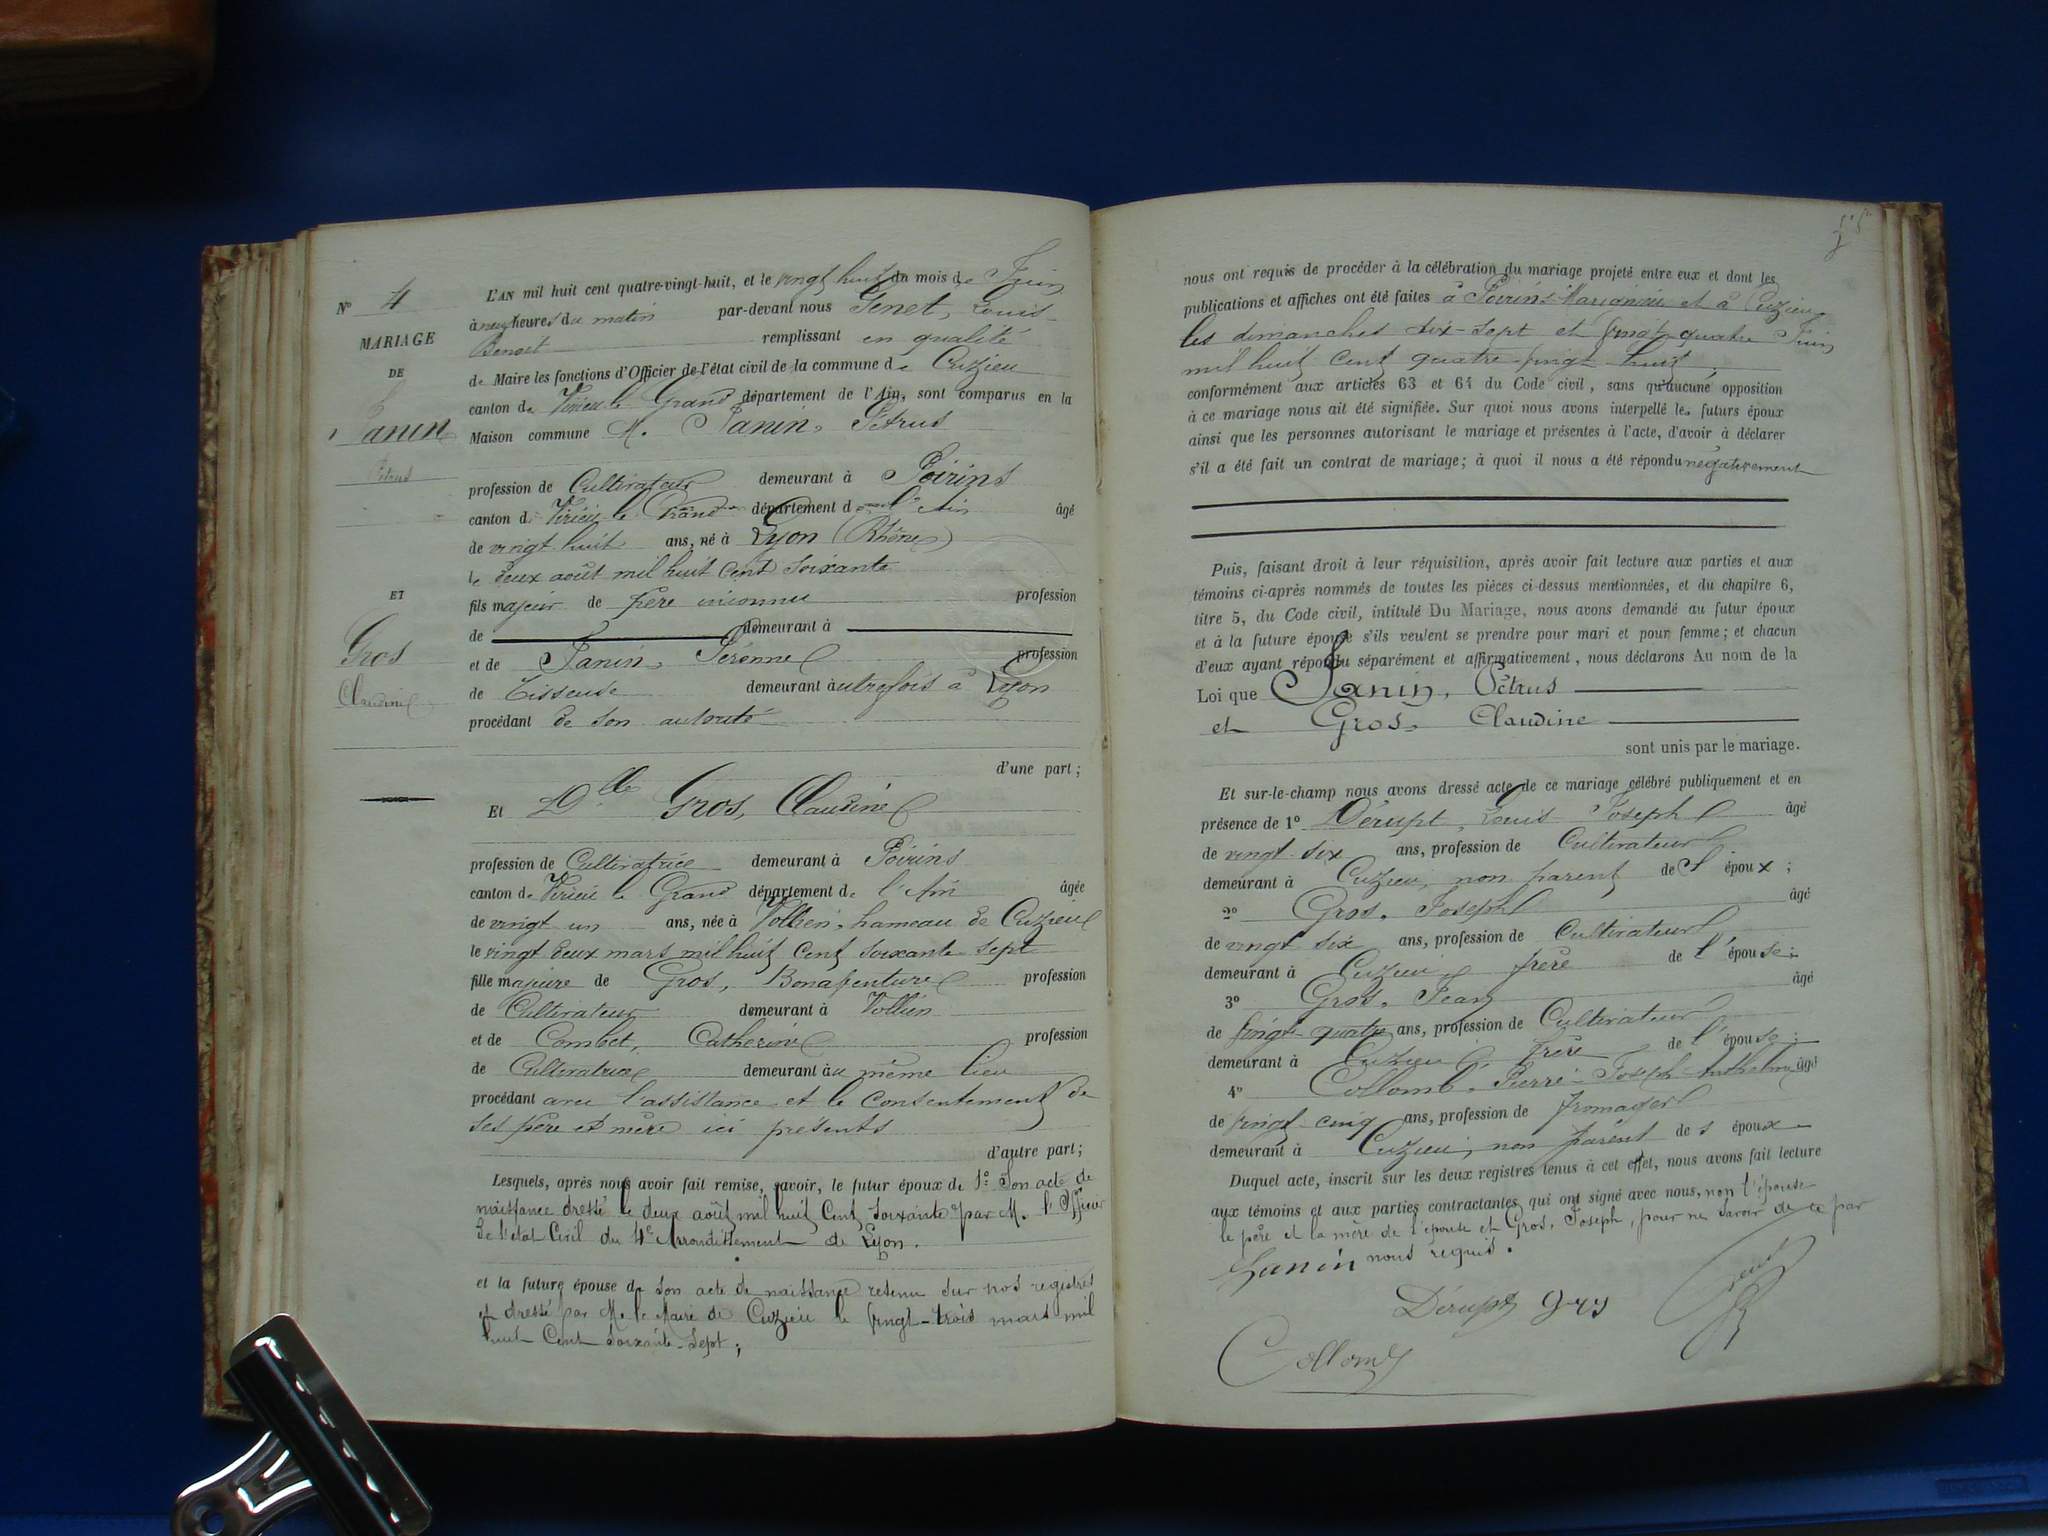 N° 4
MARIAGE
DE
Janin
Pétrus
ET
Gros
Claudine
L'AN mil huit cent quatre-vingt-huit, et le vingt huit du mois de Juin
à neuf heures du matin par-devant nous Genet, Louis-
Benoit remplissant en qualité
de Maire les fonctions d'Officier de l'état civil de la commune de Cuzieu
canton de Virieu le Grand département de l'Ain, sont comparus en la
Maison commune M. Janin, Pétrus
profession de Cultivateur demeurant à Poirins
canton de Virieu le Grand département de l'Ain âgé
de vingt huit ans, né à Lyon (Rhône)
le deux août mil huit cent soixante
fils majeur de père inconnu profession
de demeurant à
et de Janin, Pérenne profession
de Tisseuse demeurant autrefois à Lyon
procédant de son autorité
d'une part;
Et Dlle Gros, Claudine
profession de Cultivatrice demeurant à Poirins
canton de Virieu le Grand département de l'Ain âgée
de vingt un ans, née à Vollien, hameau de Cuzieu
le vingt deux mars mil huit cent soixante sept
fille majeure de Gros, Bonaventure profession
de Cultivateur demeurant à Vollien
et de Combet, Catherine profession
de Cultivatrice demeurant au même lieu
procédant avec l'assistance et le consentement de
ses père et mère ici présents
d'autre part;
Lesquels, après nous avoir fait remise, savoir, le futur époux de 1° Son acte de
naissance dressé le deux août mil huit cent soixante par M. l'Officier
de l'état Civil du 4e Arrondissement de Lyon.
et la future épouse de son acte de naissance retenu sur nos registres
et dressé par M. le Maire de Cuzieu le vingt-trois mars mil
huit Cent soixante-sept;
nous ont requis de procéder à la célébration du mariage projeté entre eux et dont les
publications et affiches ont été faites à Poirins-Marignieu et à Cuzieu
les dimanches dix-sept et vingt-quatre Juin
mil huit cent quatre-vingt-huit
conformément aux articles 63 et 64 du Code civil, sans qu'aucune opposition
à ce mariage nous ait été signifiée. Sur quoi nous avons interpellé les futurs époux
ainsi que les personnes autorisant le mariage et présentes à l'acte, d'avoir à déclarer
s'il a été fait un contrat de mariage; à quoi il nous a été répondu négativement
Puis, faisant droit à leur réquisition, après avoir fait lecture aux parties et aux
témoins ci-après nommés de toutes les pièces ci-dessus mentionnées, et du chapitre 6,
titre 5, du Code civil, intitulé Du Mariage, nous avons demandé au futur époux
et à la future épouse s'ils veulent se prendre pour mari et pour femme; et chacun
d'eux ayant répondu séparément et affirmativement, nous déclarons Au nom de la
Loi que Janin, Pétrus
et Gros, Claudine
sont unis par le mariage.
Et sur-le-champ nous avons dressé acte de ce mariage célébré publiquement et en
présence de 1° Dérupt, Louis Joseph âgé
de vingt-six ans, profession de Cultivateur
demeurant à Cuzieu, non parent de l'époux;
2° Gros, Joseph âgé
de vingt six ans, profession de Cultivateur
demeurant à Cuzieu, frère de l'épouse;
3° Gros, Jean âgé
de vingt-quatre ans, profession de Cultivateur
demeurant à Cuzieu, frère de l'épouse;
4° Collomb, Pierre-Joseph-Anthelme âgé
de vingt-cinq ans, profession de fromager
demeurant à Cuzieu, non parent des époux
Duquel acte, inscrit sur les deux registres tenus à cet effet, nous avons fait lecture
aux témoins et aux parties contractantes qui ont signé avec nous, non l'épouse
le père et la mère de l'épouse et Gros, Joseph, pour ne savoir de ce par
nous requis.
Janin
Dérupt gros
Genet
Collomb